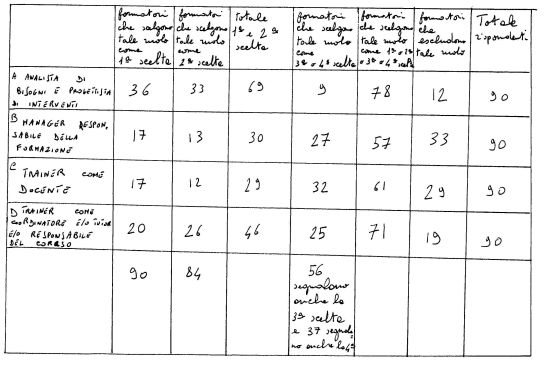 formatori che scelgono tale ruolo come 1ª scelta
formatori che scelgono tale ruolo come 2ª scelta
totale 1ª e 2ª scelta
formatori che scelgono tale ruolo come 3ª o 4ª scelta
formatori che scelgono tale ruolo come 1ª o 2ª o 3ª o 4ª scelta
formatori che escludono tale ruolo
Totale rispondenti
A ANALISTA DI
BISOGNI E PROGETTISTA
DI INTERVENTI
36 33 69 9 78 12 90
B MANAGER RESPON,
SABILE DELLA
FORMAZIONE
17 13 30 27 57 33 90
C TRAINER COME
DOCENTE
17 12 29 32 61 29 90
D TRAINER COME
COORDINATORE E/O TUTOR
E/O RESPONSABILE
DEL CORSO
20 26 46 25 71 19 90
90 84 56
segnalano
anche la
3ª scelta
e 37 segnala,
no anche la 4ª